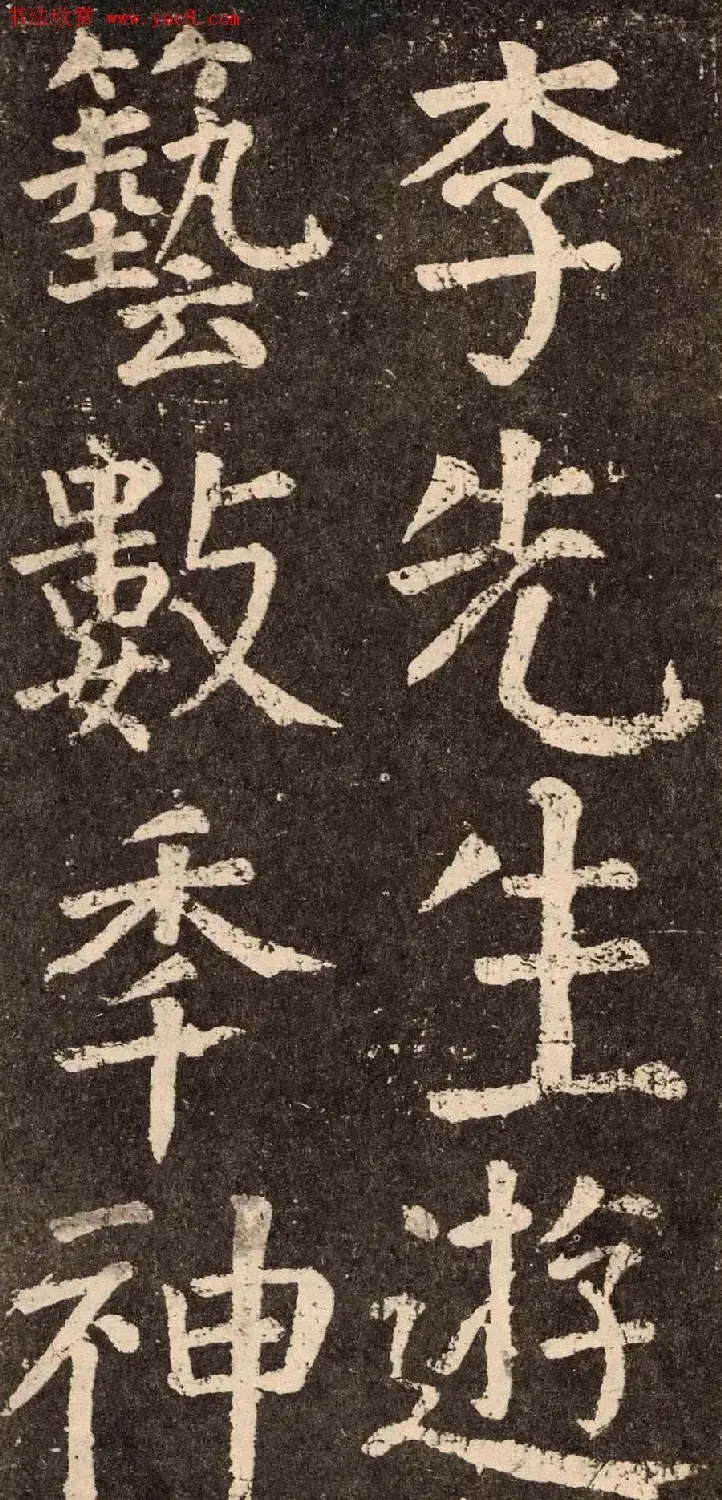 书法欣赏 www.yac8.com
李先生遊
藝數季神